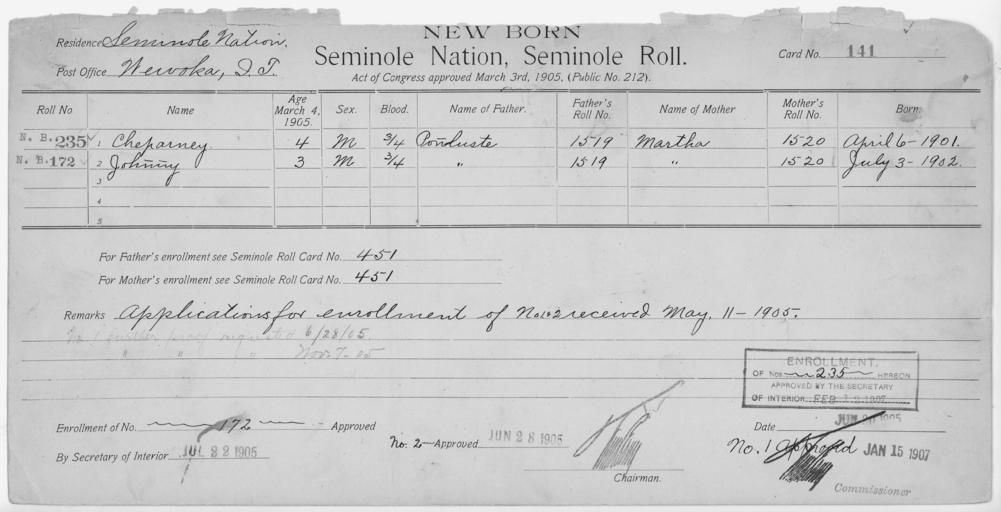 NEW BORN
Residence Seminole Nation.
Seminole Nation, Seminole Roll.
Card No. 141
Post Office Wewoka, I.T.
Act of Congress approved March 3rd, 1905, (Public No. 212).
Roll No Name Age March 4, 1905. Sex. Blood. Name of Father. Father's Roll No. Name of Mother Mother's Roll No. Born.
N. B. 235 1 Cheparney 4 M 3/4 Ponluste 1519 Martha 1520 April 6-1901.
N. B. 172 2 Johnny 3 M 3/4 " 1519 " 1520 July 3-1902.
3
4
5
For Father's enrollment see Seminole Roll Card No. 451
For Mother's enrollment see Seminole Roll Card No. 451
Remarks Applications for enrollment of No. 1&2 received May, 11-1905.
No. 1 further proof requested 6/28/05.
" " " Nov. 7-05
ENROLLMENT.
OF Nos. 235 HEREON
APPROVED BY THE SECRETARY
OF INTERIOR FEB 12 1907
Enrollment of No. 172 Approved
By Secretary of Interior JUL 22 1905
No. 2 - Approved JUN 28 1905
Chairman.
Date JUN 1905
No. 1 approved JAN 15 1907
Commissioner